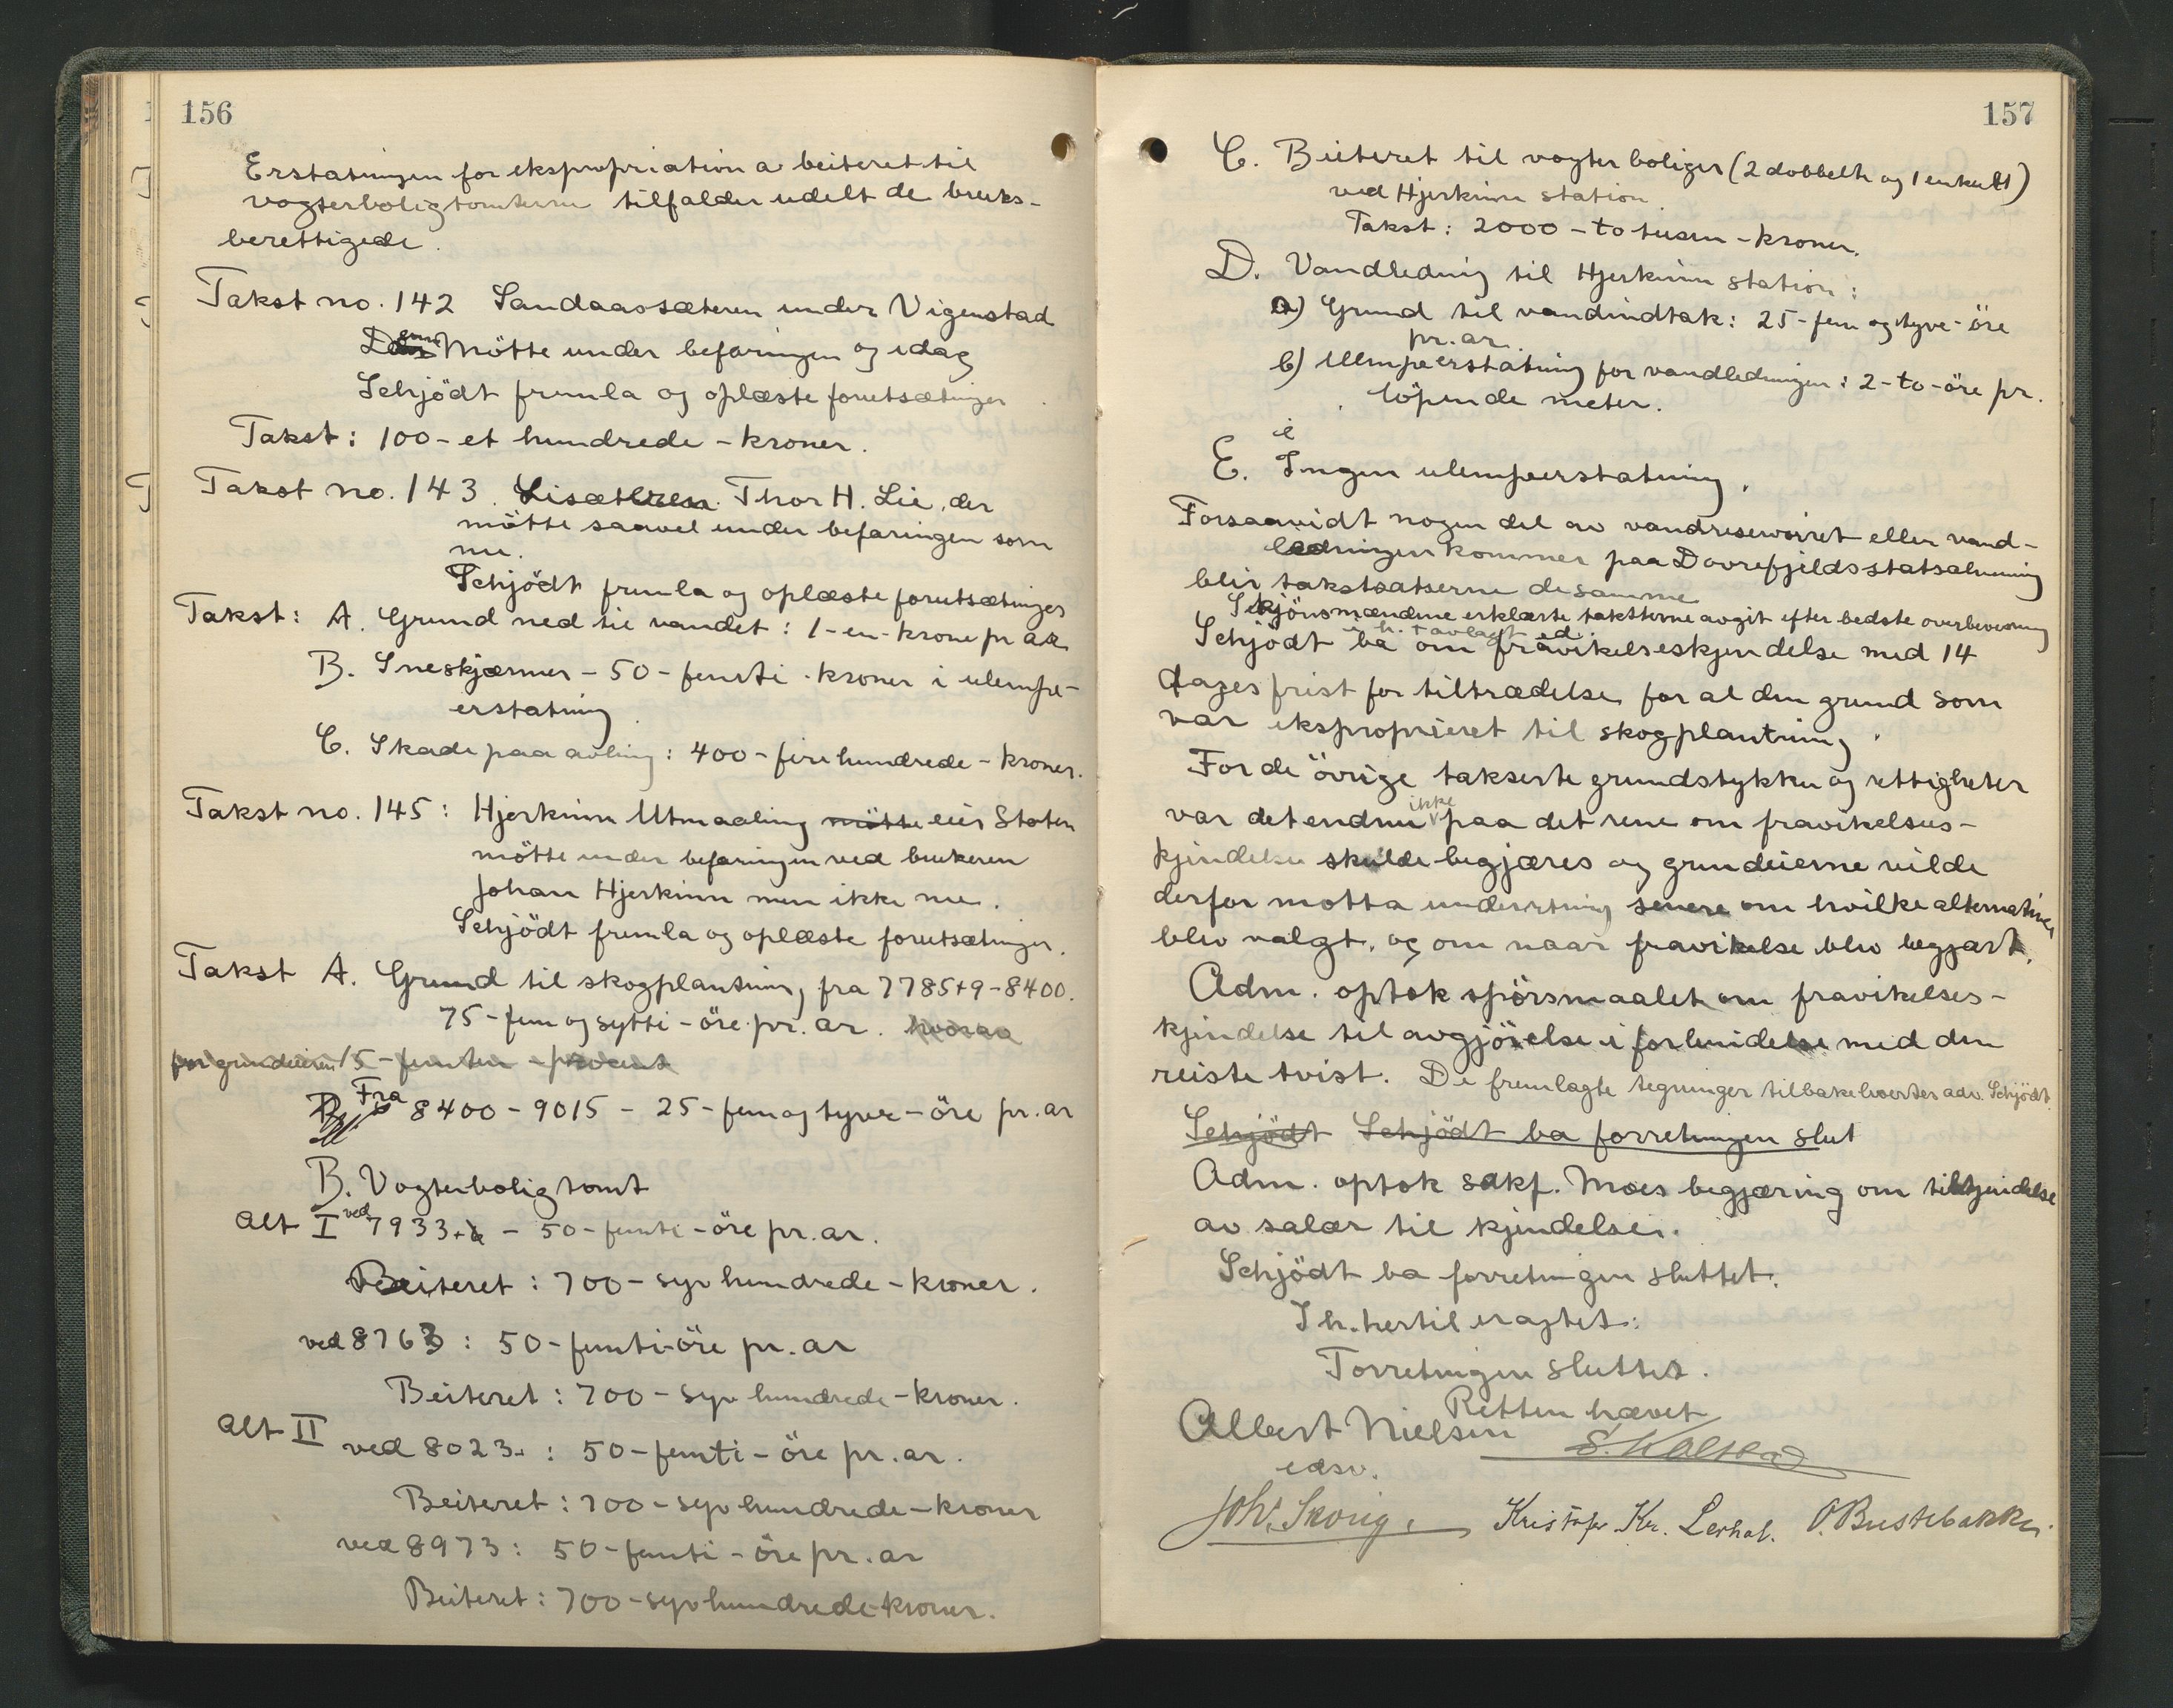 156
Erstatningen for ekspropriation a beiteret til
vogterboligtomterne tilfalder udelt de bruks-
berettigede.
Takst no. 142 Sandaassæteren under Vigenstad
Denne Mötte under befaringen og idag
Schjödt fremla og oplæste forutsætninger
Takst: 100 - et hundrede - kroner.
Takst no. 143. Lisæteren. Thor H. Lie, der
mötte saavel under befaringen som
nu.
Schjödt fremla og oplæste forutsætninger
Takst: A. Grund ned til vandet: 1 - en - krone pr ar
B. Sneskjærmer - 50 - femti - kroner i ulempe-
erstatning.
C. Skade paa avling: 400 - fire hundrede - kroner.
Takst no. 145: Hjerkinn Utmaaling mötte eier Staten
mötte under befaringen ved brukeren
Johan Hjerkinn men ikke nu.
Schjödt fremla og oplæste forutsætninger.
Takst A. Grund til skogplantning fra 7785+9 - 8400.
75 - fem og sytti - öre pr. ar. hvorav
for grundeieren 15 - femten - procent
Fra 8400 - 9015 - 25 - fem og tyve - öre pr. ar
B. Vogterboligtomt
Alt I ved 7933 - 50 - femti - öre pr. ar.
Beiteret: 700 - syv hundrede - kroner.
ved 8763: 50 - femti - öre pr. ar
Beiteret: 700 - syv hundrede - kroner.
Alt II
ved 8023.: 50 - femti - öre pr. ar.
Beiteret: 700 - syv hundrede - kroner
ved 8973: 50 - femti - öre pr. ar
Beiteret: 700 - syv hundrede - kroner.
157
C. Beiteret til vogterboliger (2 dobbelte og 1 enkelt)
ved Hjerkinn station.
Takst: 2000 - to tusen - kroner.
D. Vandledning til Hjerkinn station:
a) Grund til vandindtak: 25 - fem og tyve - öre
pr. ar.
b) Ulempeerstatning for vandledningen: 2 - to - öre pr.
löpende meter.
E. Ingen ulempeerstatning.
Forsaavidt nogen del av vandreservoiret eller vand-
ledningen kommer paa Dovrefjelds statsalmenning
blir takstsatserne de samme
Skjönsmændene erklærte taksterne avgit efter bedste overbevisning
i h. t. avlagt ed.
Schjödt ba om fravikelseskjendelse med 14
dages frist for tiltrædelse for al den grund som
var ekspropriert til skogplantning.
For de övrige takserte grundstykker og rettigheter
var det endnu ikke paa det rene om fravikelses-
kjendelse skulde begjæres og grundeierne vilde
derfor motta underretning senere om hvilke alternativer
blev valgt, og om naar fravikelse blev begjært.
Adm. optok spörsmaalet om fravikelses-
kjendelse til avgjörelse i forbindelse med den
reiste tvist. De fremlagte tegninger tilbakeleveres adv. Schjödt.
Schjödt Schjödt ba forretningen slut
Adm. optok sakf. Moes begjæring om tilkjendelse
av salær til kjendelse.
Schjödt ba forretningen sluttet.
Ih. hertil eragtet:
Forretningen sluttes.
Retten hævet
Albert Nielsen S. Kolstad
edsv.
Joh. Skoug. Kristofer Kr. Lerhol. O. Bustebakke.